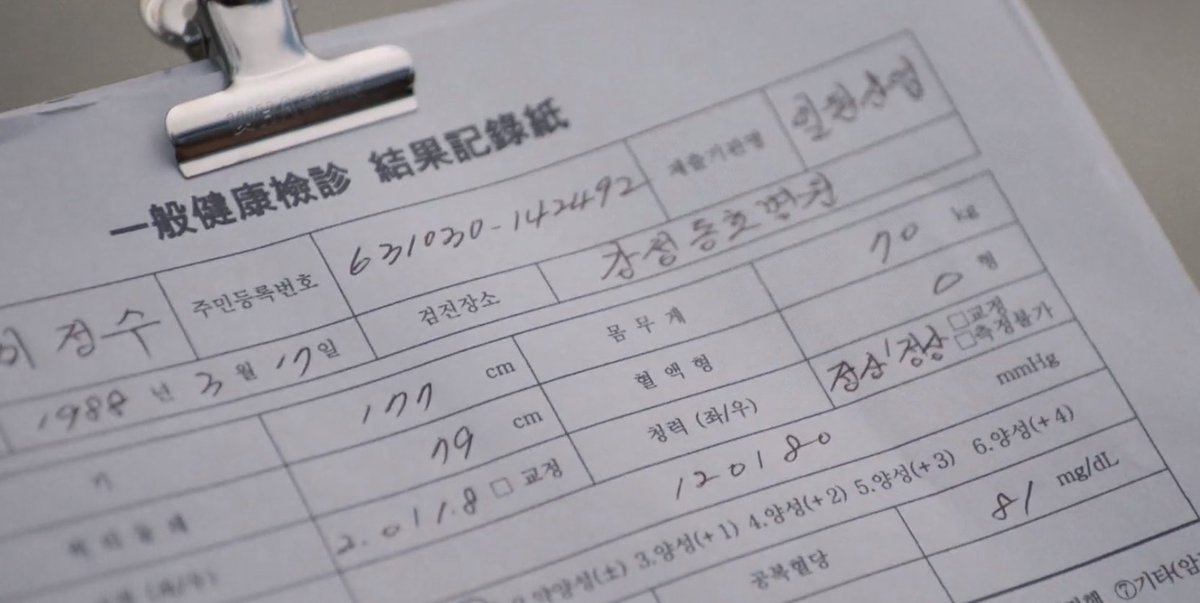 一般健康檢診 結果記錄紙
정수 주민등록번호 631030-142492 제출기관명
1988 년 3 월 17 일 검진장소 강성동호병원
177 cm 몸무게 70 kg
79 cm 혈액형 O 형
2.0/1.8 □ 교정 청력 (좌/우) 정상/정상 □교정 □측정불가
120/80 mmHg
3.양성(+1) 4.양성(+2) 5.양성(+3) 6.양성(+4)
공복혈당 81 mg/dL
⑦기타(암